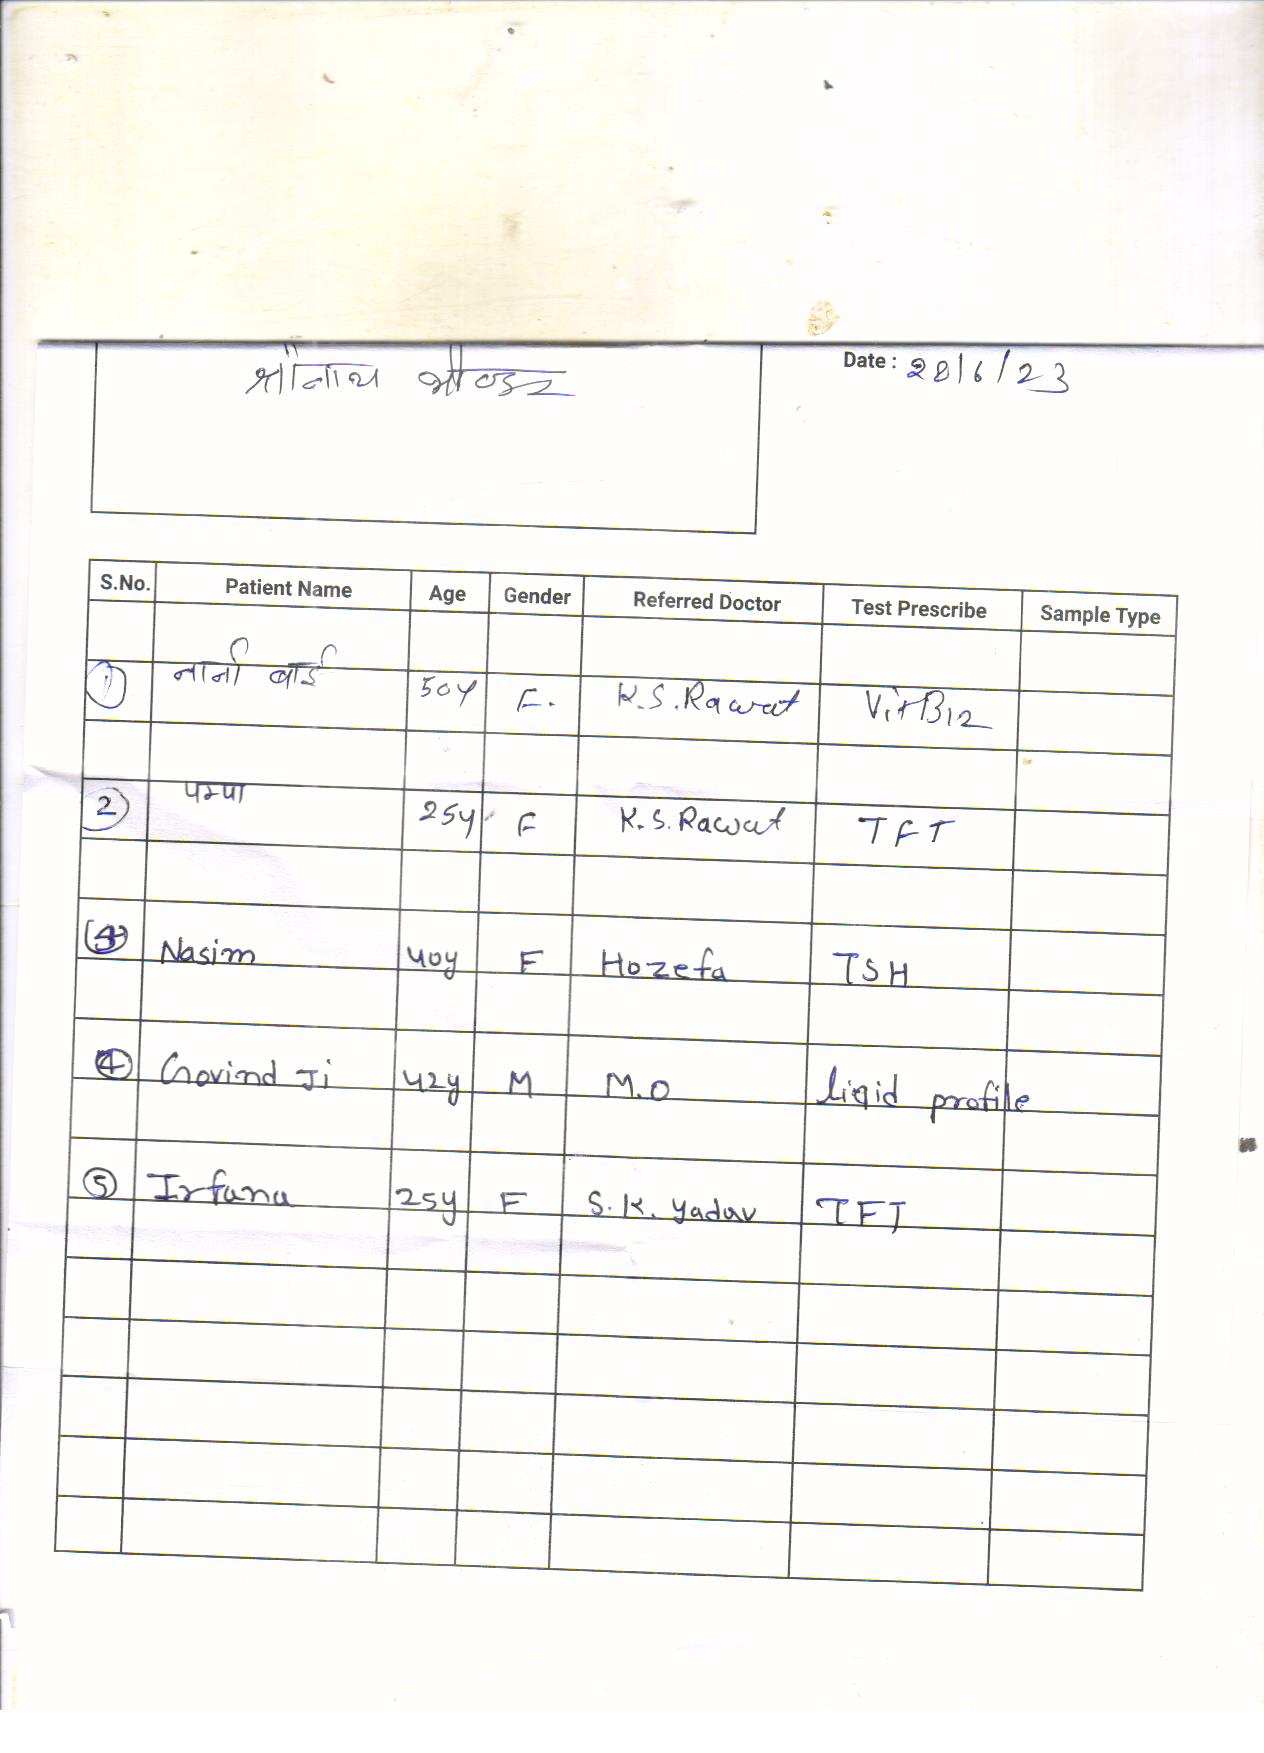 श्रीनाथ भीण्डर
Date : 28/6/23
S.No. Patient Name Age Gender Referred Doctor Test Prescribe Sample Type
1 नानी बाई 50y F. K.S.Rawat Vit B12
2 पम्पा 25y F K.S.Rawat TFT
Nasim 40y F Hozefa TSH
4 Govind Ji 42y M M.O liqid profile
5 Irfana 25y F S.K. yadav TFT